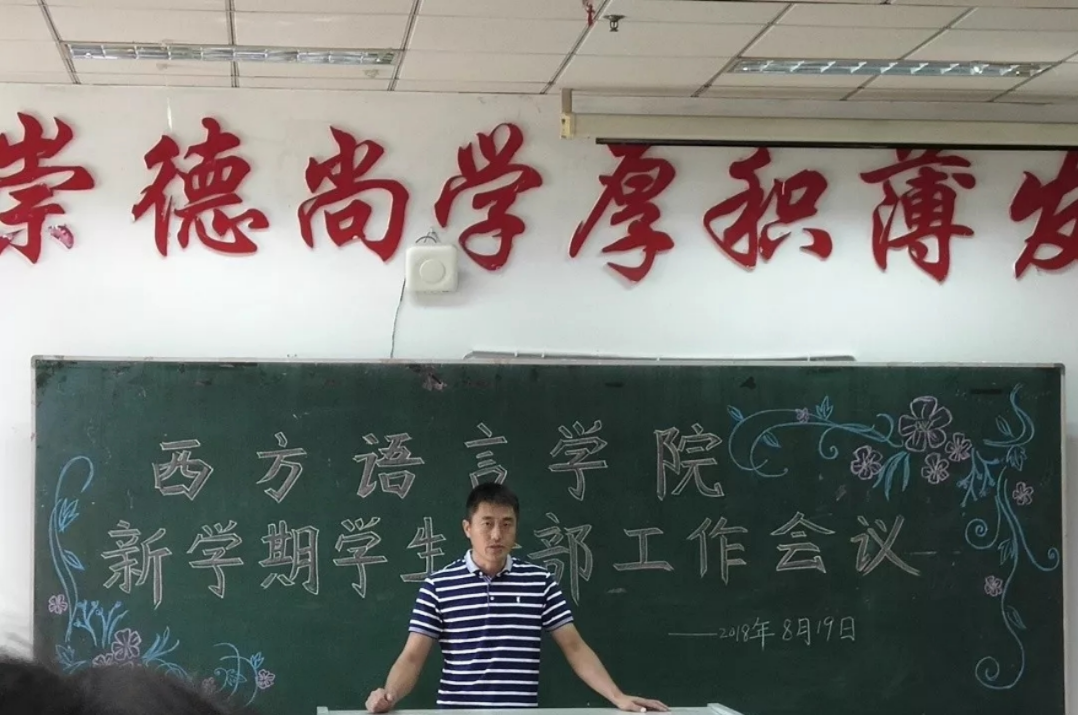 崇德尚学厚积薄发
西方语言学院
新学期学生部工作会议
——2018年8月19日